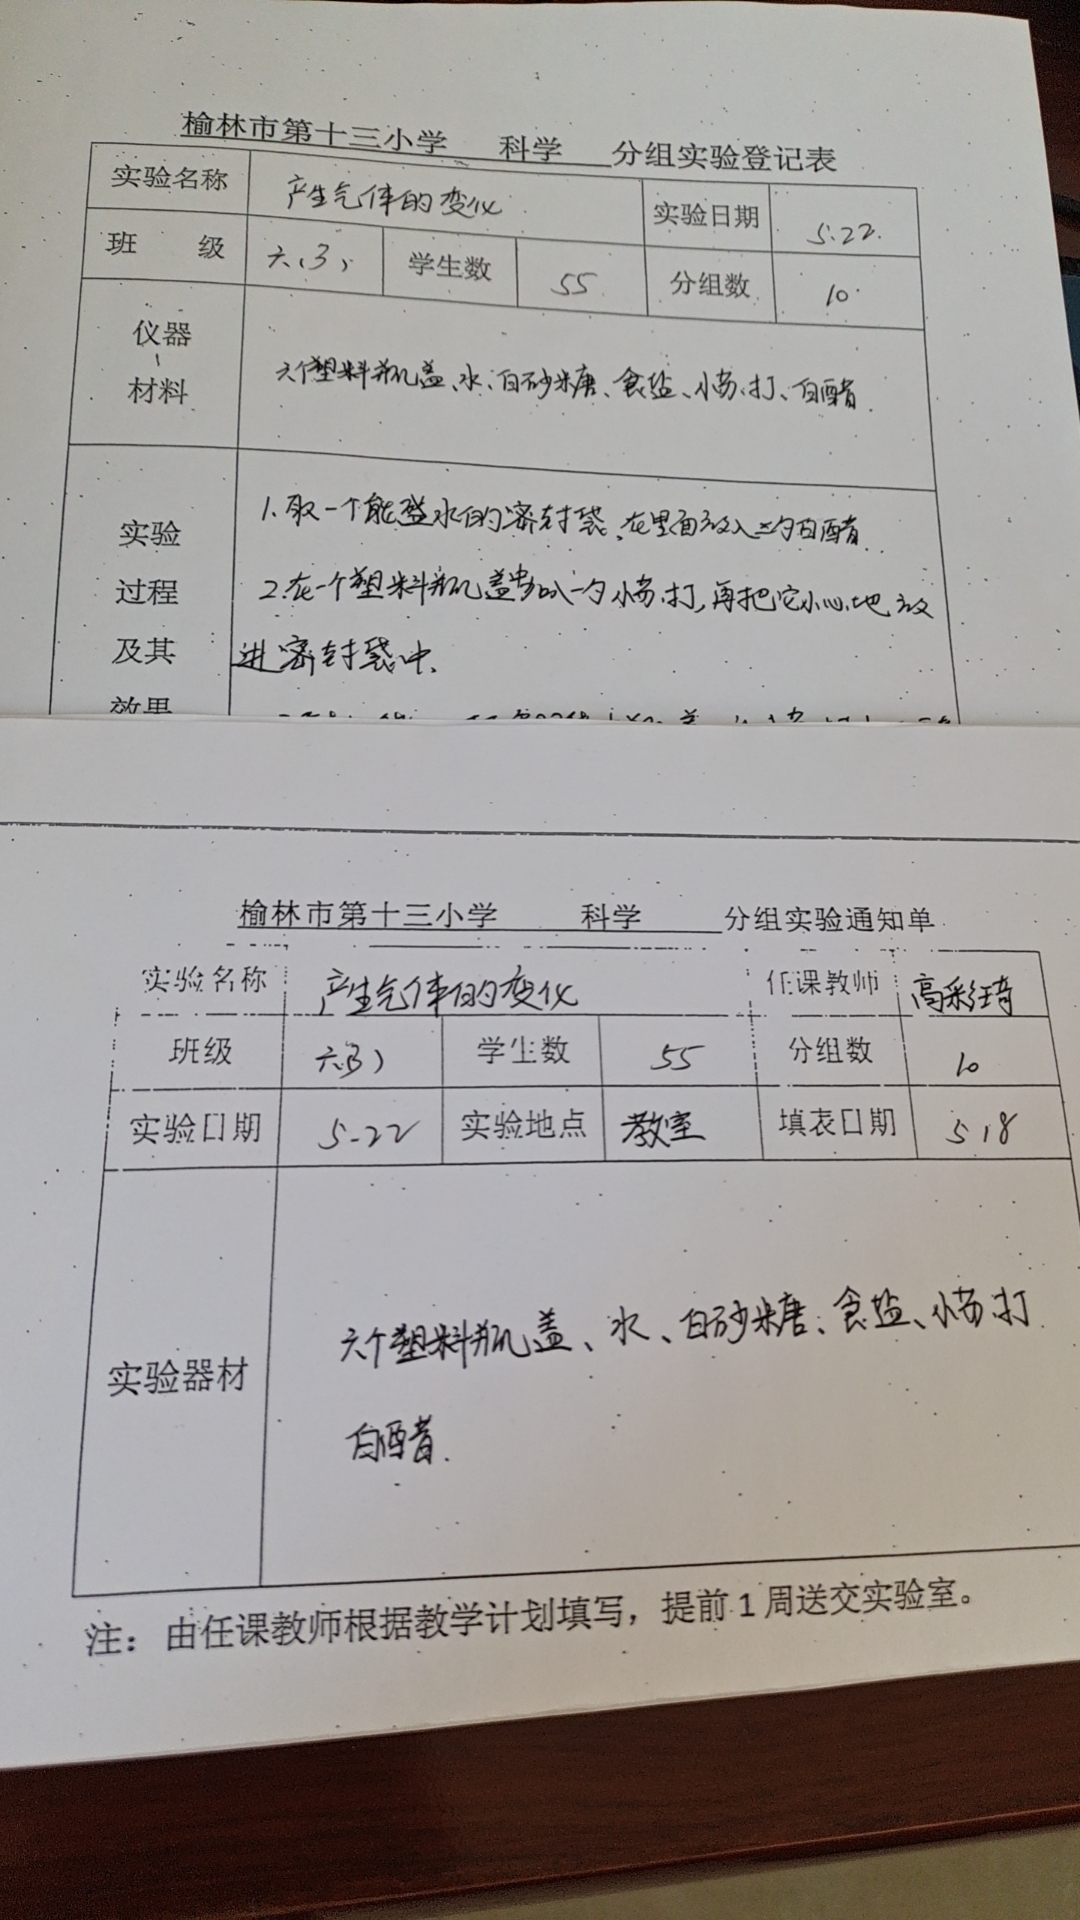 榆林市第十三小学 科学 分组实验登记表
实验名称 产生气体的变化 实验日期 5.22.
班 级 六(3) 学生数 55 分组数 10
仪器、材料 六个塑料瓶盖、水、白砂糖、食盐、小苏打、白醋.
实验过程及其效果
1.取一个能盛水的密封袋,在里面放入三勺白醋.
2.在一个塑料瓶盖中加入一勺小苏打,再把它小心地放
进密封袋中.
榆林市第十三小学 科学 分组实验通知单
实验名称 产生气体的变化 任课教师 高彩琦
班级 六(3) 学生数 55 分组数 10
实验日期 5-22 实验地点 教室 填表日期 5.18
实验器材 六个塑料瓶盖、水、白砂糖、食盐、小苏打
白醋.
注：由任课教师根据教学计划填写，提前1周送交实验室。